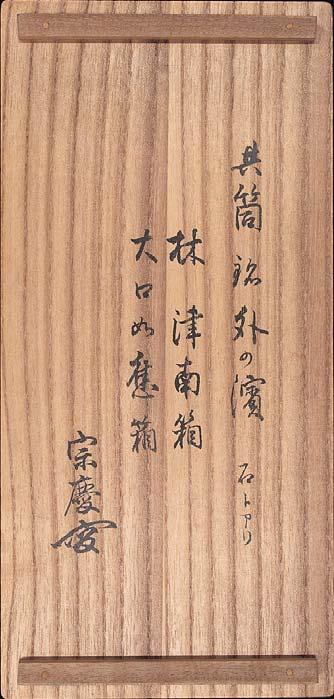 共筒 銘 外の濱 石トアリ
林 津南箱
大口如舊箱
宗慶